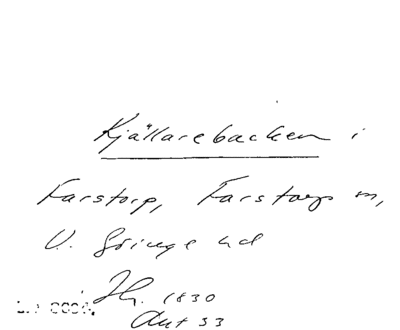 Källarebacken i
Farstorp, Farstorp sn,
V. Göinge hd
Jh. 1830
Aut 33